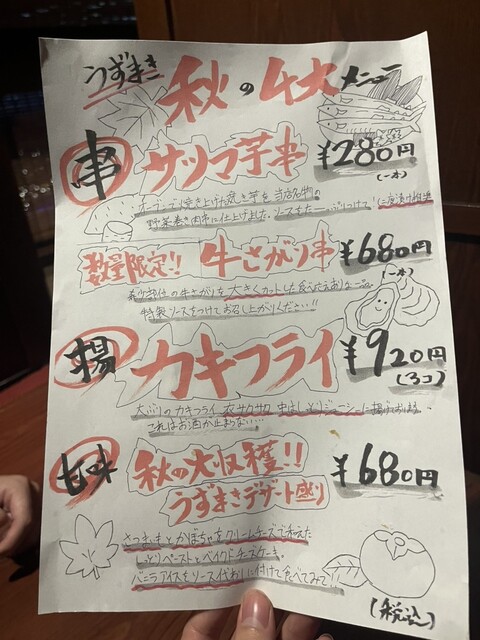 うずまき 秋の4大メニュー
串 サツマ芋串 ¥280円
(一本)
オーブンで焼き上げた焼き芋を当店名物の
野菜巻き肉串に仕上げました。ソースをたーっぷりつけて
数量限定!! 牛さがり串 ¥680円
(一本)
希少部位の牛さがりを大きくカットした食べごたえありな一品。
特製ソースをつけてお召し上がりください!!
揚 カキフライ ¥920円
(3コ)
大ぶりのカキフライ 衣サクサク 中はしっとりジューシーに揚げております。
これはお酒が止まらない…
甘味 秋の大収穫!! ¥680円
うずまきデザート盛り
さつまいもとかぼちゃをクリームチーズで和えた
しっとりペーストとベイクドチーズケーキ。
バニラアイスをソース代わりに付けて食べてみて!!
(税込)